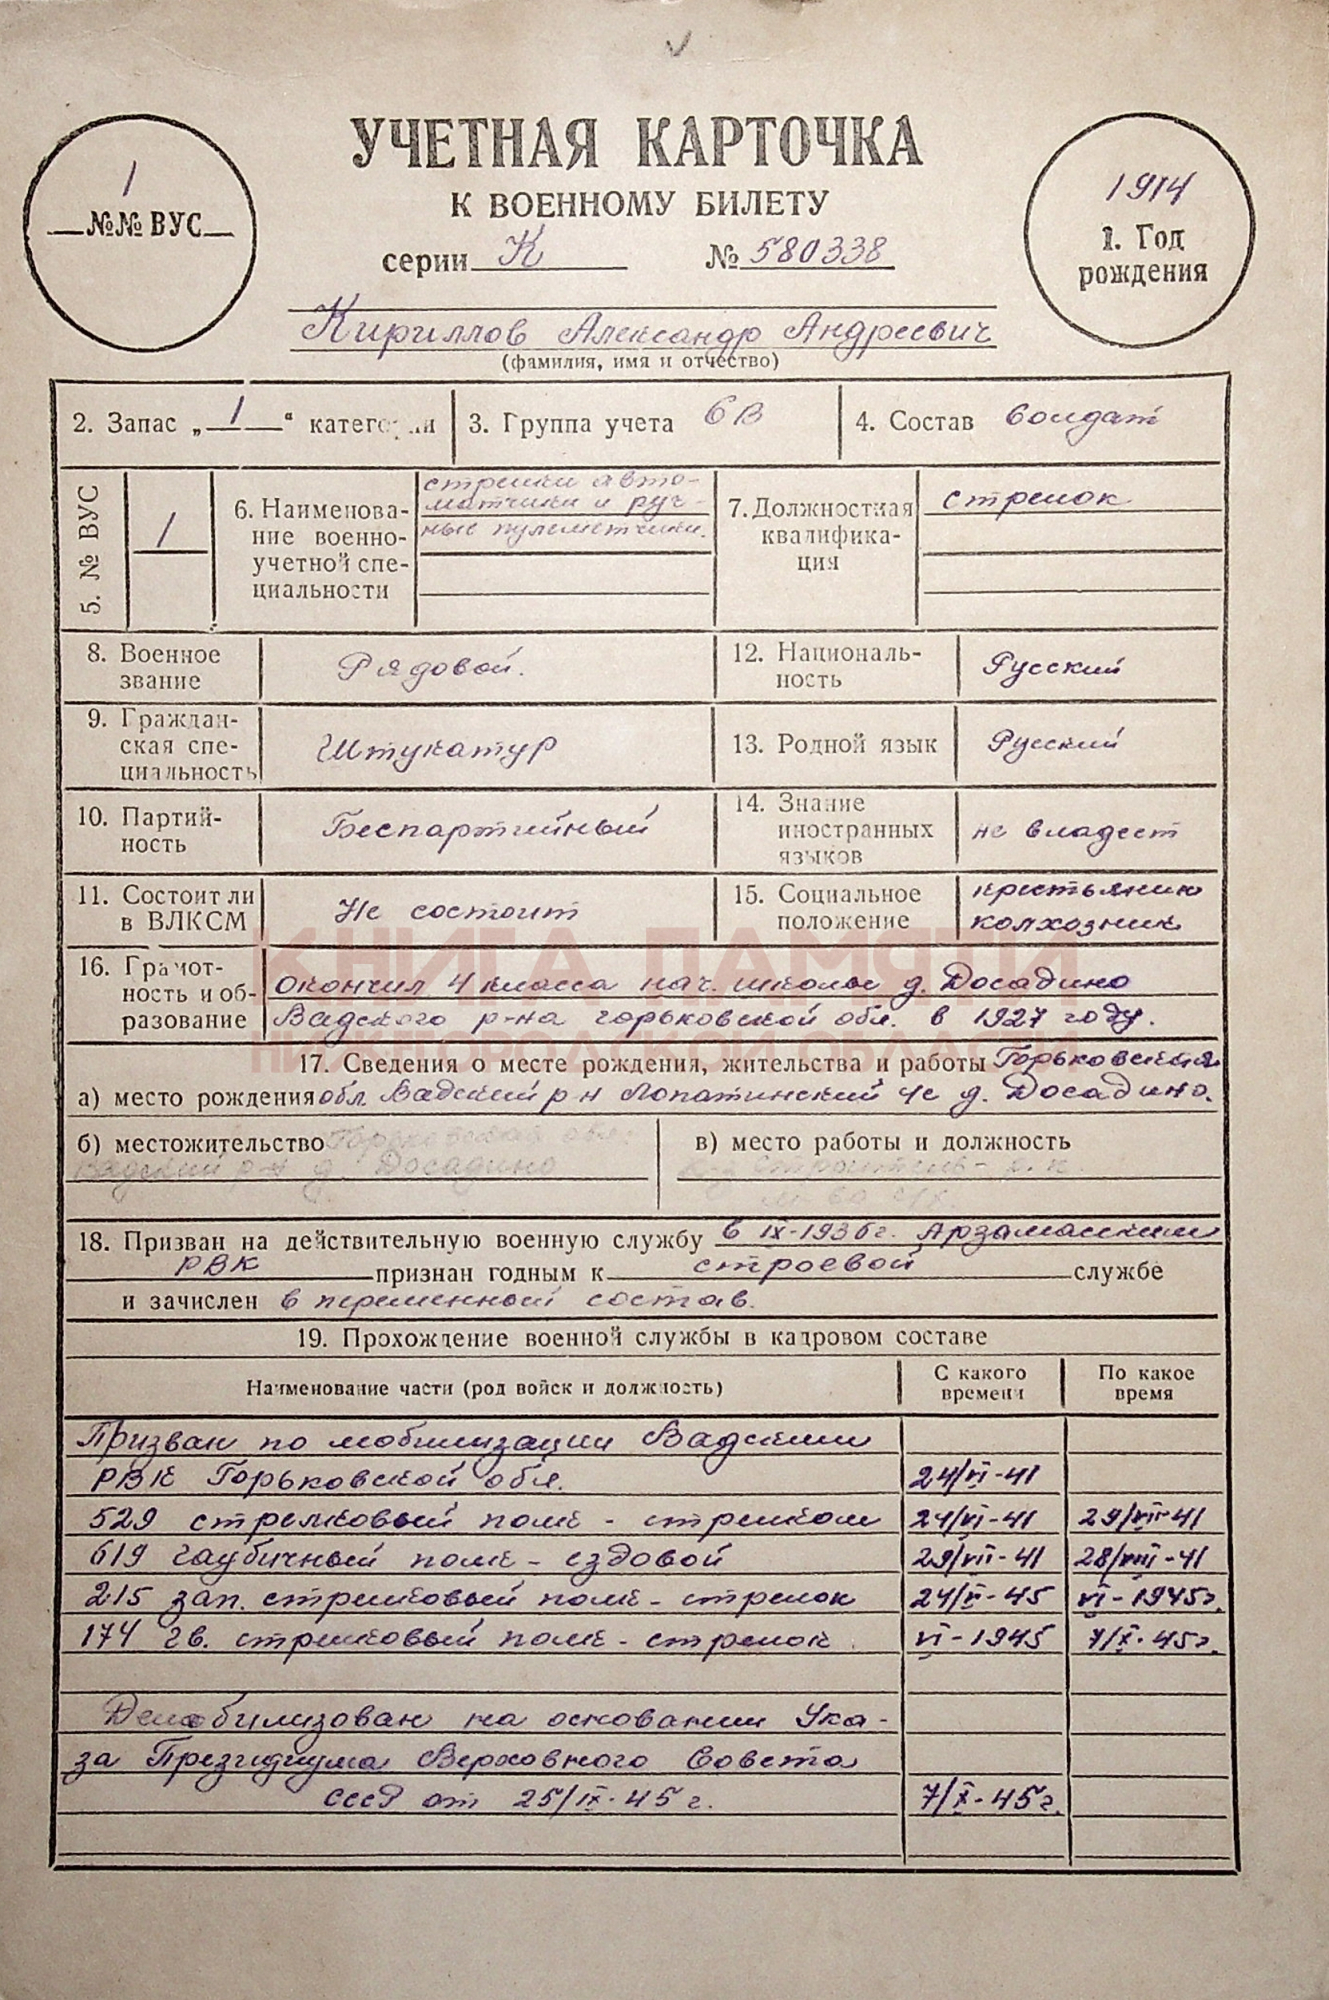 УЧЕТНАЯ КАРТОЧКА
К ВОЕННОМУ БИЛЕТУ
серии К № 580338
1
№№ ВУС
1914
1. Год
рождения
Кириллов Александр Андреевич
(фамилия, имя и отчество)
2. Запас „1“ категории
3. Группа учета 6В
4. Состав солдат
5. № ВУС
1
6. Наименова-
ние военно-
учетной спе-
циальности
стрелки авто-
матчики и руч-
ные пулеметчики.
7. Должностная
квалифика-
ция
стрелок
8. Военное
звание
Рядовой.
12. Националь-
ность
Русский
9. Граждан-
ская спе-
циальность
Штукатур
13. Родной язык
Русский
10. Партий-
ность
Беспартийный
14. Знание
иностранных
языков
не владеет
11. Состоит ли
в ВЛКСМ
Не состоит
15. Социальное
положение
крестьянин
колхозник
КНИГА ПАМЯТИ
НИЖЕГОРОДСКОЙ ОБЛАСТИ
16. Грамот-
ность и об-
разование
Окончил 4 класса нач. школы д. Досадино
Вадского р-на горьковской обл. в 1927 году.
17. Сведения о месте рождения, жительства и работы Горьковская
а) место рождения обл Вадский р н Лопатинский с/с д. Досадино.
б) местожительство Горьковская обл.
Вадский р-н д. Досадино
в) место работы и должность
18. Призван на действительную военную службу в IX-1936г. Арзамасским
РВК признан годным к строевой службе
и зачислен в переменный состав.
19. Прохождение военной службы в кадровом составе
Наименование части (род войск и должность)
С какого
времени
По какое
время
Призван по мобилизации Вадским
РВК Горьковской обл. 24/VI-41
529 стрелковый полк - стрелком 24/VI-41 29/VII-41
619 гаубичный полк - ездовой 29/VII-41 28/VIII-41
215 зап. стрелковый полк - стрелок 24/V-45 VI-1945г.
174 гв. стрелковый полк - стрелок VI-1945 7/X-45г.
Демобилизован на основании Ука-
за Президиума Верховного Совета
СССР от 25/IX-45 г. 7/X-45г.